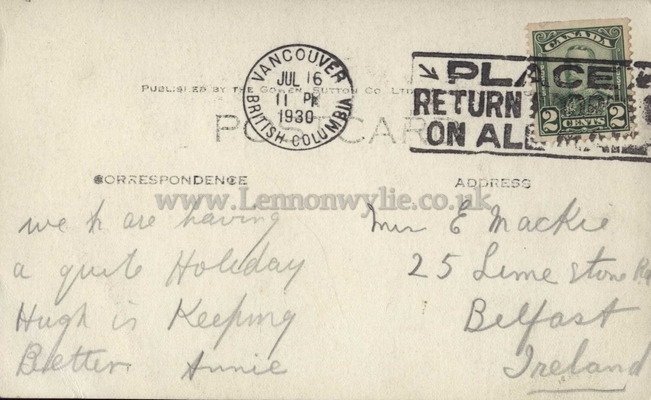 CANADA
2 CENTS 2
VANCOUVER
JUL 16
11 PM
1930
BRITISH COLUMBIA
PLACE
RETURN
ON ALL
PUBLISHED BY THE GOWEN SUTTON CO. LTD
POSTCARD
CORRESPONDENCE
ADDRESS
www.Lennonwylie.co.uk
we h are having
a quite Holiday
Hugh is Keeping
Better Annie
E Mackie
25 Lime stone Rd
Belfast
Ireland